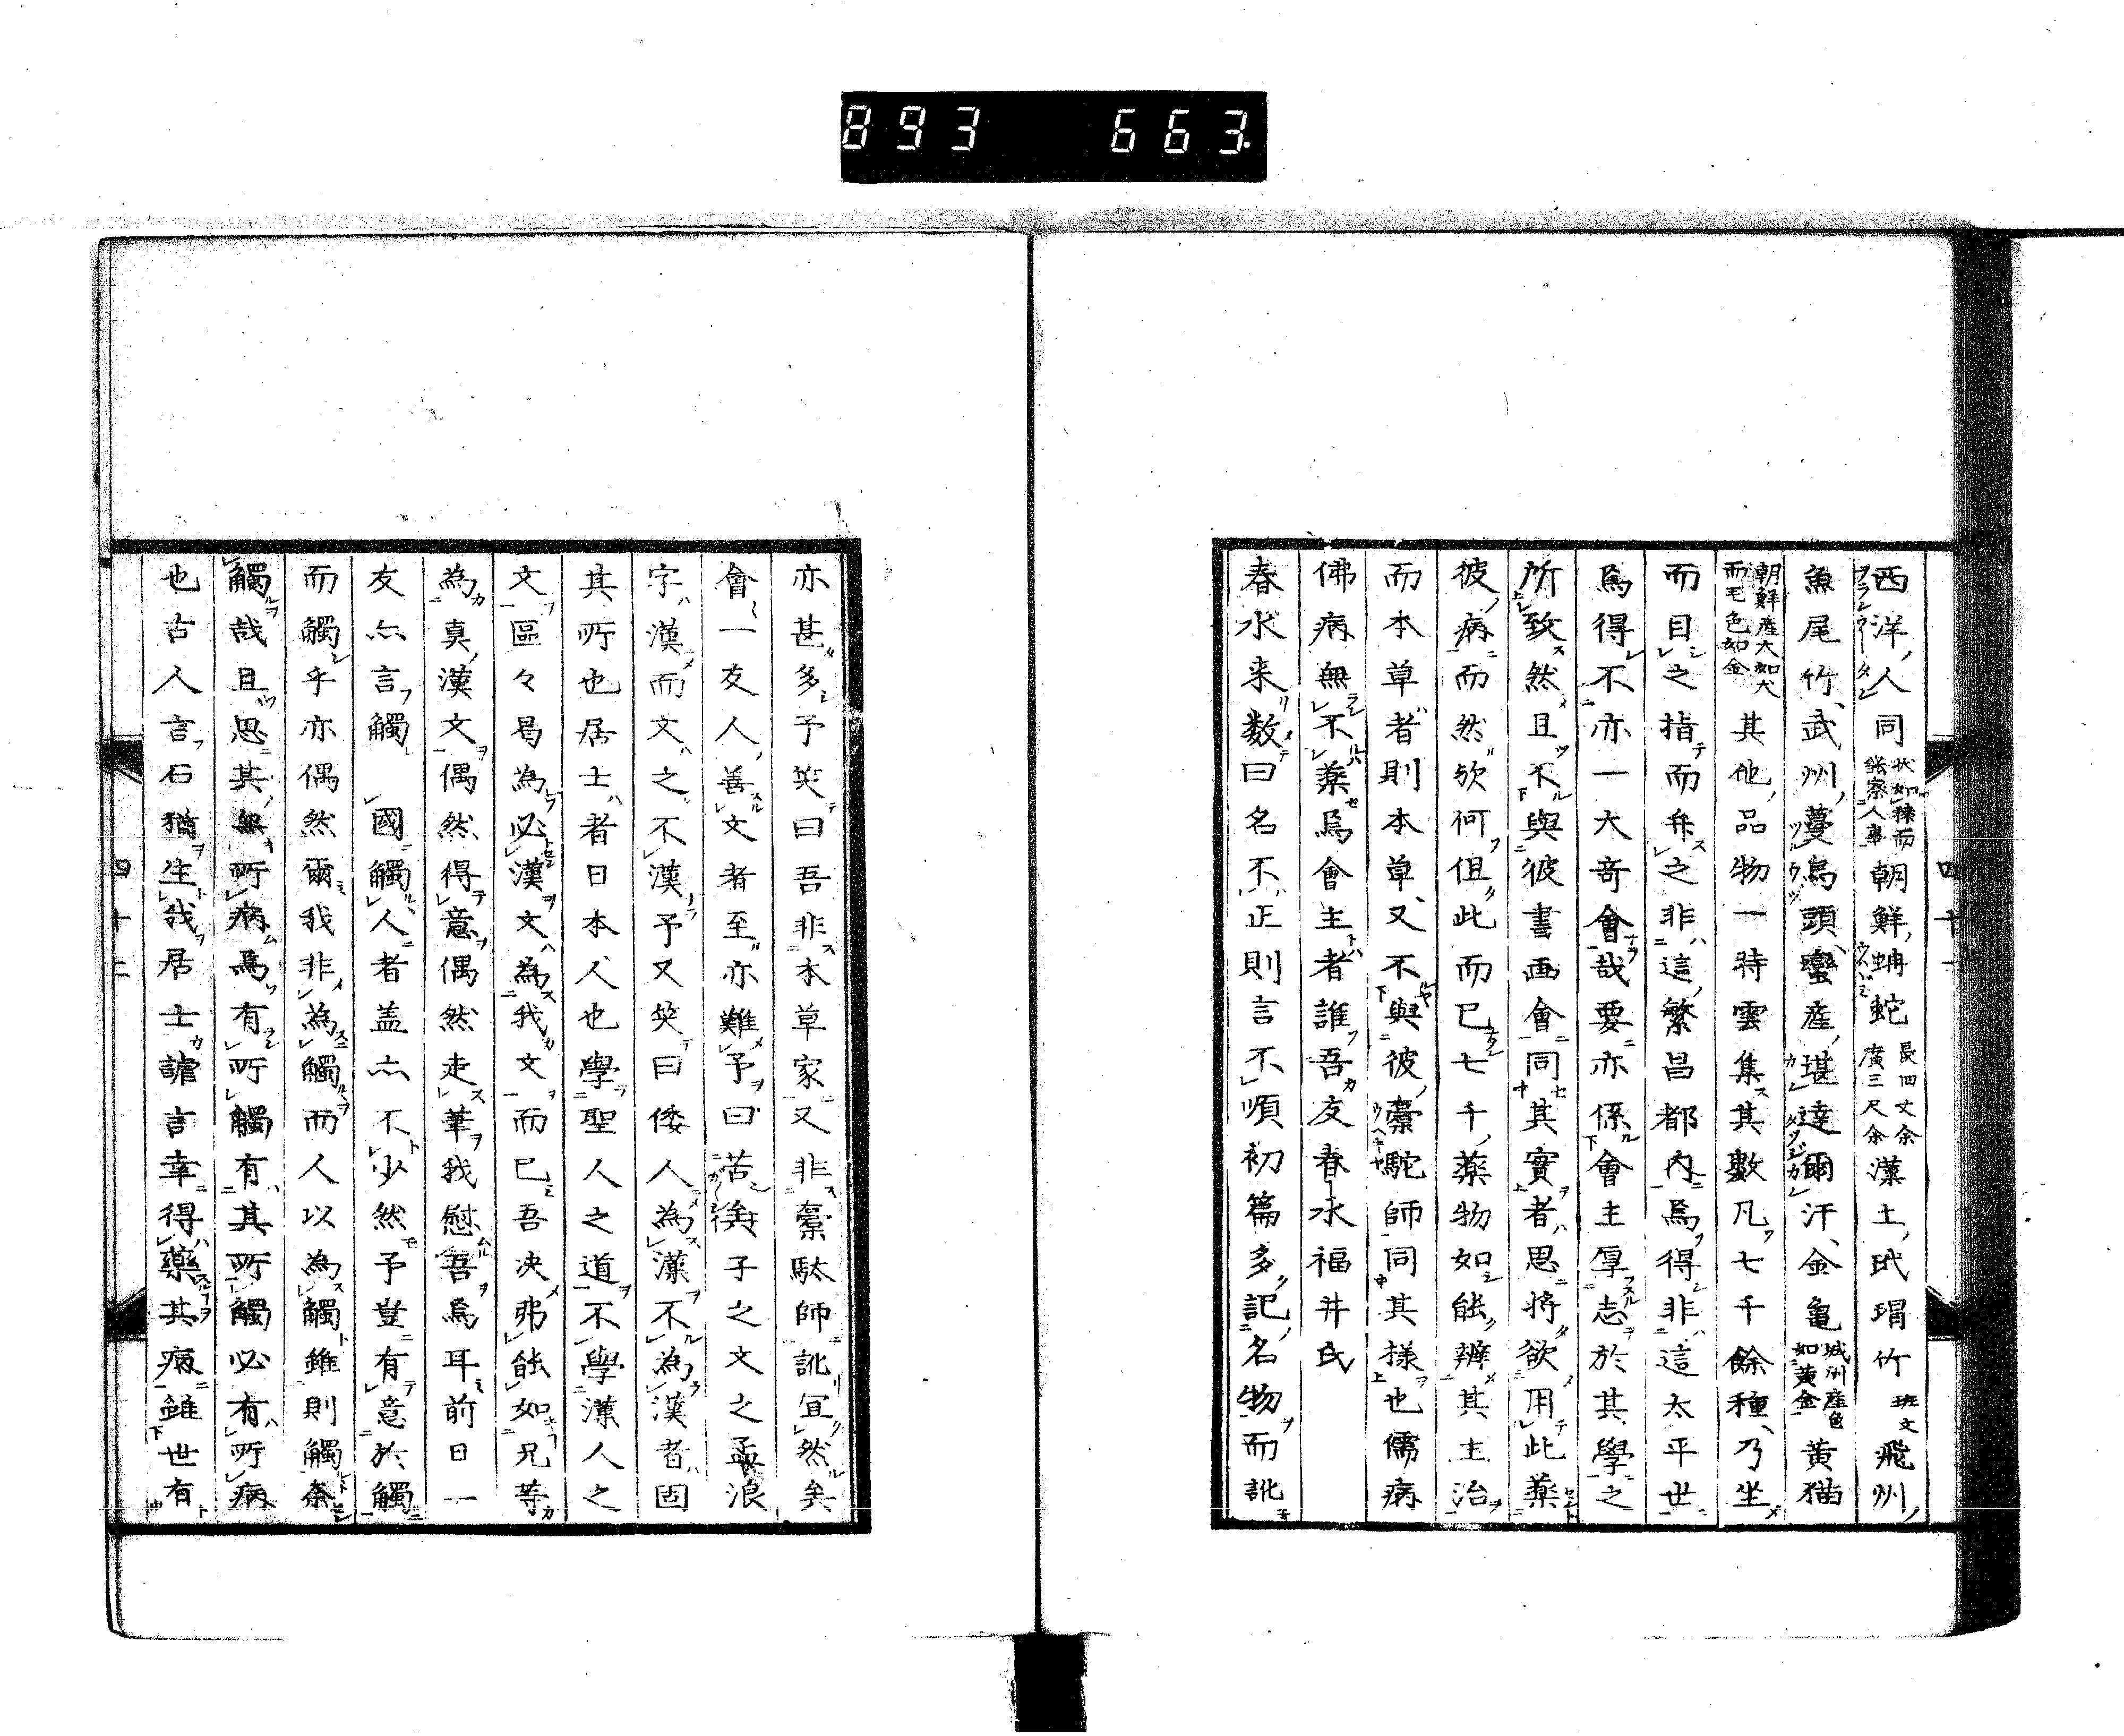 893 663
西洋人同状如猱而能察人事朝鮮蚺蛇長四丈余廣三尺余漢土玳瑁竹班文飛州
魚尾竹武州蔓烏頭蠻産堪達爾汗金亀城州産色如黄金黄猫
朝鮮産大如犬而毛色如金其他品物一時雲集其數凡七千餘種乃坐
而目之指而弁之非這繁昌都内焉得非這太平世
焉得不亦一大奇會哉要亦係會主厚志於其學之
所致然且不與彼書画會同其實者思将欲用此薬
彼病而然欤何但此而已七千薬物如能辨其主治
而本草者則本草又不與彼橐駝師同其様也儒病
佛病無不薬焉會主者誰吾友春水福井氏
春水来数曰名不正則言不順初篇多記名物而訛
四十一
亦甚多予笑曰吾非本草家又非橐駄師訛宜然矣
會一友人善文者至亦難予曰苦矣子之文之孟浪
字漢而文之不漢予又笑曰倭人為漢不為漢者固
其所也居士者日本人也學聖人之道不學漢人之
文區々曷為必漢文為我文而已吾决弗能如兄等
為真漢文偶然得意偶然走筆我慰吾焉耳前日一
友亦言觸國觸人者盖亦不少然予豈有意於觸
而觸乎亦偶然爾我非為觸而人以為觸雖則觸奈
觸哉且思其無所病焉有所觸有其所觸必有所病
也古人言石猶生我居士譫言幸得藥其病雖世有
四十二